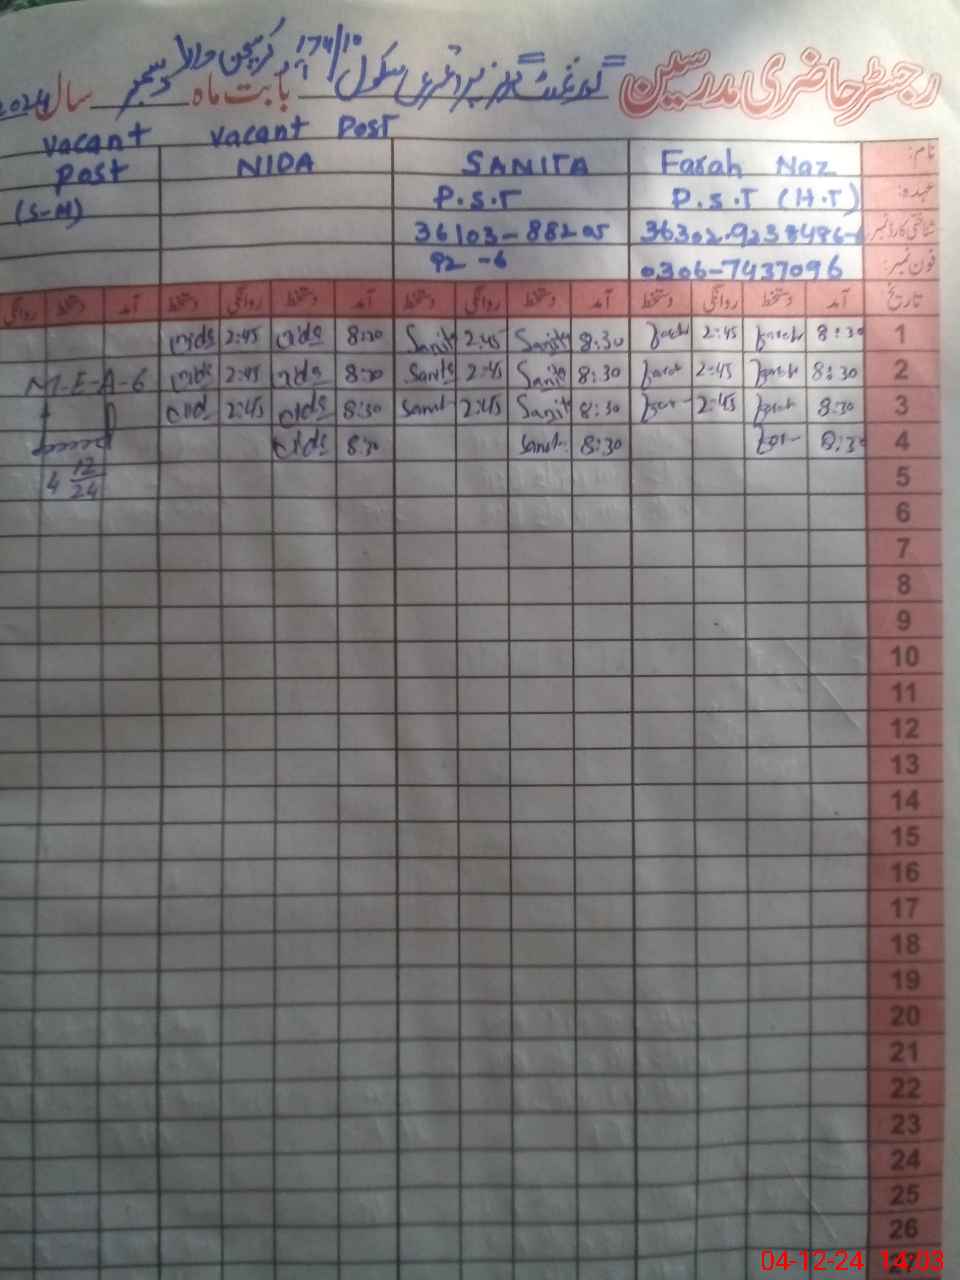 رجسٹر حاضری مدرسین گورنمنٹ گرلز پرائمری سکول 174/10.R کرسچن والا بابت ماہ دسمبر سال 2024
نام: Farah Naz SANITA vacant Post NIDA vacant Post
عہدہ: P.S.T (H.T) P.S.T (S-M)
شناختی کارڈ نمبر 36302-9238486- 36103-88205
فون نمبر: 0306-7437096 92-6
تاریخ آمد دستخط روانگی دستخط آمد دستخط روانگی دستخط آمد دستخط روانگی دستخط آمد دستخط روانگی
1 8:30 Farah 2:45 Farah 8:30 Sanita 2:45 Sanita 8:30 nida 2:45 nida
2 8:30 Farah 2:45 Farah 8:30 Sanita 2:45 Sanita 8:30 nida 2:45 nida M-E-A-6
3 8:30 Farah 2:45 Farah 8:30 Sanita 2:45 Sanita 8:30 nida 2:45 nida
4 8:30 Farah 8:30 Sanita 8:30 nida
5 4 12/24
6
7
8
9
10
11
12
13
14
15
16
17
18
19
20
21
22
23
24
25
26
27
04-12-24 14:03